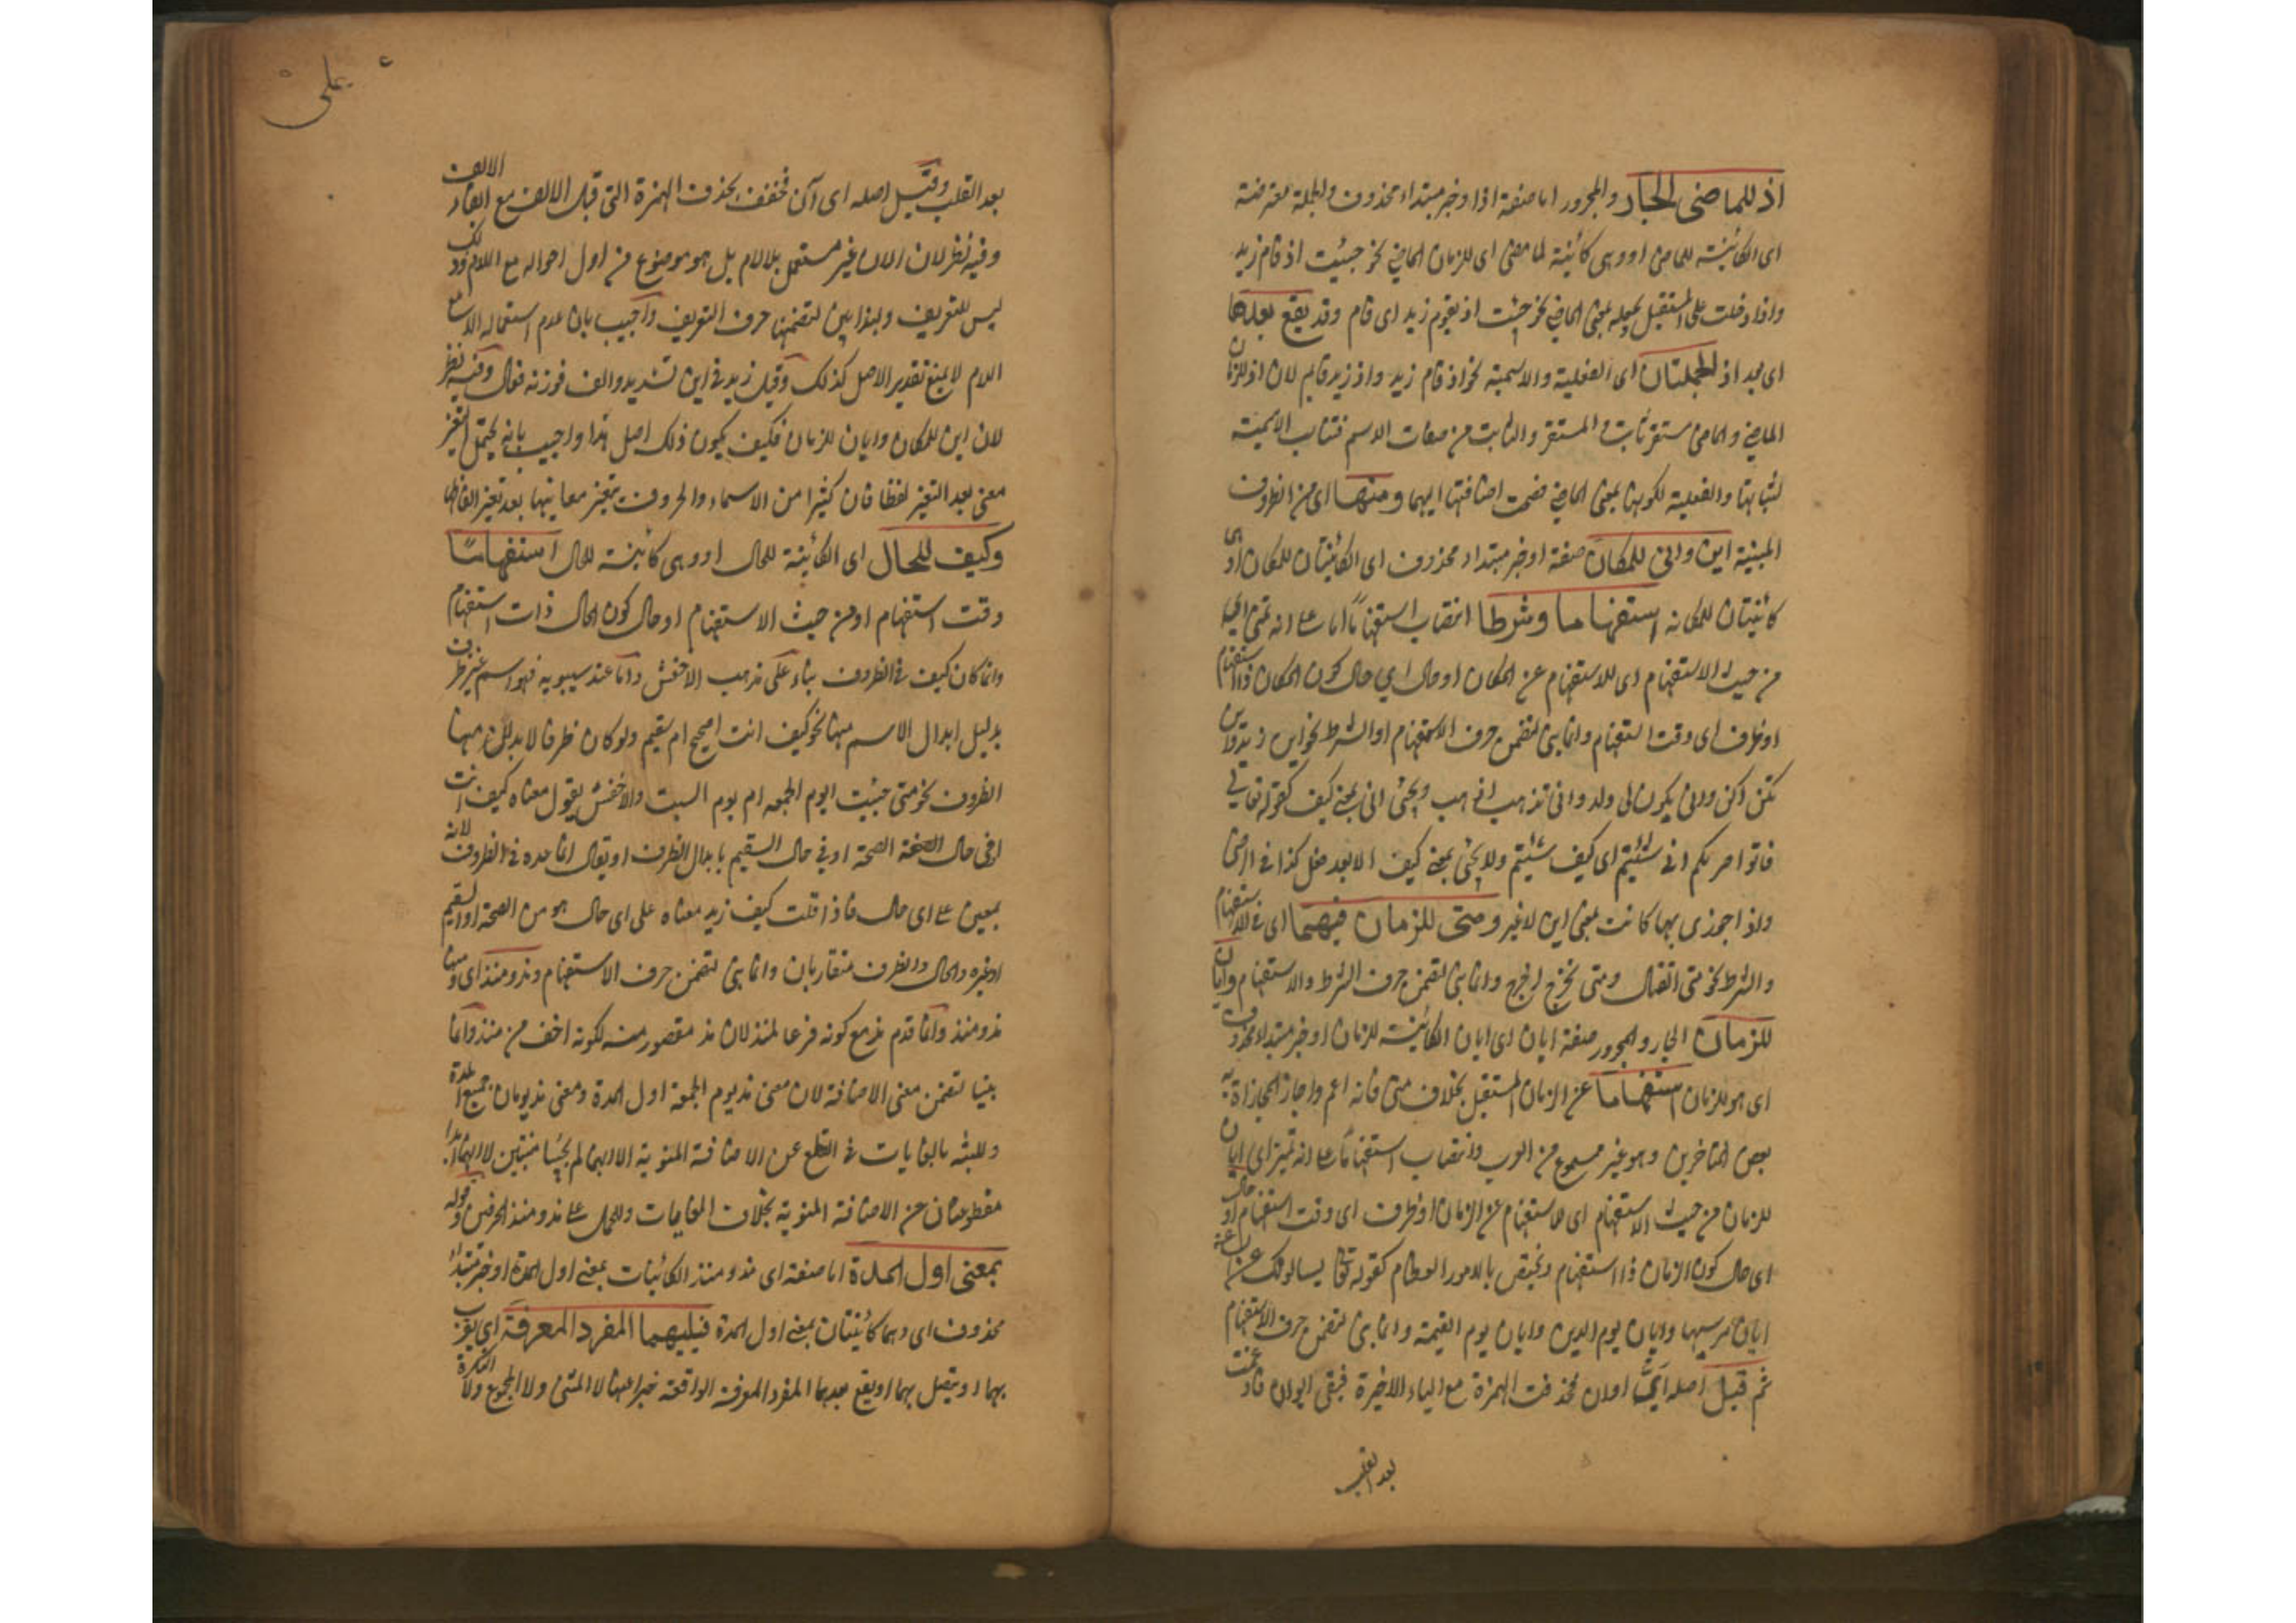 اذ للماضى الجار والمجرور اما صفة اذ او خبر مبتداء محذوف والجملة معترضة
اى الكائنة للماضى او وهى كائنة لما مضى اى للزمان الماضى نحو جيئت اذ قام زيد
واذا دخلت على المستقبل يجعله بمعنى الماضى نحو جئت اذ يقوم زيد اى قام وقد يقع بعدها
اى بعد اذ الجملتان اى الفعلية والاسمية نحو اذ قام زيد واذ زيد قايم لان اذ للزمان
الماضى والماضى مستقر ثابت والمستقر والثابت من صفات الاسم فتناسب الاسمية
لثباتها والفعلية لكونها بمعنى الماضى فصحت اضافتها اليهما ومنها اى من الظروف
المبنية اين وانى للمكان صفة او خبر مبتداء محذوف اى الكائنتان للمكان او هى
كائنتان للمكان استفهاما وشرطا انتصاب استفهاما اما على انه تميز اى
من حيث الاستفهام اى للاستفهام عن المكان او حال اى حال كون المكان ذا استفهام
او ظرف اى وقت استفهام وانما بنى لتضمن حرف الاستفهام او الشرط نحو اين زيد واين
تكن اكن وانى يكون لى ولد وانى تذهب اذهب ويجئ انى بمعنى كيف كقوله تعالى
فاتوا حرثكم انى شئتم اى كيف شئتم ولا يجئ بمعنى كيف الا بعد فعل كذا فى الرضى
واذا جوزى بها كانت بمعنى اين لا غير ومتى للزمان فيهما اى فى الاستفهام
والشرط نحو متى القتال ومتى تخرج اخرج وانما بنى لتضمن حرف الشرط والاستفهام وايان
للزمان الجار والمجرور صفة ايان اى ايان الكائنة للزمان او خبر مبتداء محذوف
اى هو للزمان استفهاما عن الزمان المستقبل بخلاف متى فانه اعم واجاز المجازاة به
بعض المتاخرين وهو غير مسموع من العرب وانتصاب استفهاما على انه تميز اى ايان
للزمان من حيث الاستفهام اى للاستفهام عن الزمان او ظرف اى وقت استفهام او حال
اى حال كون الزمان ذا استفهام ويختص بالامور العظام كقوله تعالى يسالونك عن الساعة
ايان مرسيها وايان يوم الدين وايان يوم القيمة وانما بنى لتضمن حرف الاستفهام
ثم قيل اصله اى اوان فحذفت الهمزة مع الياء الاخيرة فبقى ايوان فادغمت
بعد القلب
يملى
بعد القلب وقيل اصله اى آن فخفف بحذف الهمزة التى قبل الالف مع ابقاء الالف
وفيه نظر لان الان غير مستعمل بلا لام بل هو موضوع من اول احواله مع اللام وذلك
ليس للتعريف ولهذا بين لتضمنها حرف التعريف واجيب بان عدم استعماله الا مع
اللام لا يمنع تقدير الاصل كذلك وقيل زيد فى اين تشديد والف فوزنه فعال وفيه نظر
لان اين للمكان وايان للزمان فكيف يكون ذلك اصل هذا واجيب بانه يحتمل التغير
معنى بعد التغير لفظا فان كثيرا من الاسماء والحروف يتغير معانيها بعد تغير الفاظها
وكيف للحال اى الكائنة للحال او وهى كائنة للحال استفهاما
وقت استفهام او من حيث الاستفهام او حال كون الحال ذات استفهام
وانما كان كيف فى الظروف بناء على مذهب الاخفش واما عند سيبويه فهو اسم غير ظرف
بدليل ابدال الاسم منها نحو كيف انت اصحيح ام سقيم ولو كان ظرفا لابدل منها
الظروف نحو متى جئت ايوم الجمعه ام يوم السبت والاخفش يقول معناه كيف انت
افى حال الصحة او فى حال السقيم بابدال الظرف او يقال انما عده فى الظروف لانه
بمعنى على اى حال فاذا قلت كيف زيد معناه على اى حال هو من الصحة او السقيم
او غيره والحال والظرف متقاربان وانما بنى لتضمن حرف الاستفهام ومذ ومنذ اى ومنها
مذ ومنذ وانما قدم مذ مع كونه فرعا لمنذ لان مذ مقصور منه لكونه اخف من منذ وانما
بنيا لتضمن معنى الاضافة لان معنى مذ يوم الجمعة اول المدة ومعنى مذ يومان جميع المدة
وللشبه بالغايات فى القطع عن الاضافة المنوية الا انهما لم يجيئا مبنيين لا انهما ابدا
مقطوعتان عن الاضافة المنوية بخلاف الغايات وللحمل على مذ ومنذ الحرفين وقوله
بمعنى اول المدة اما صفة اى مذ ومنذ الكائنات بمعنى اول المدة او خبر مبتداء
محذوف اى وهما كائنتان بمعنى اول المدة فيليهما المفرد المعرفة اى يقرب
بهما او يتصل بهما او يقع بعدهما المفرد المعرفة الواقعة خبرا عنها لا المثنى ولا المجموع ولا النكرة